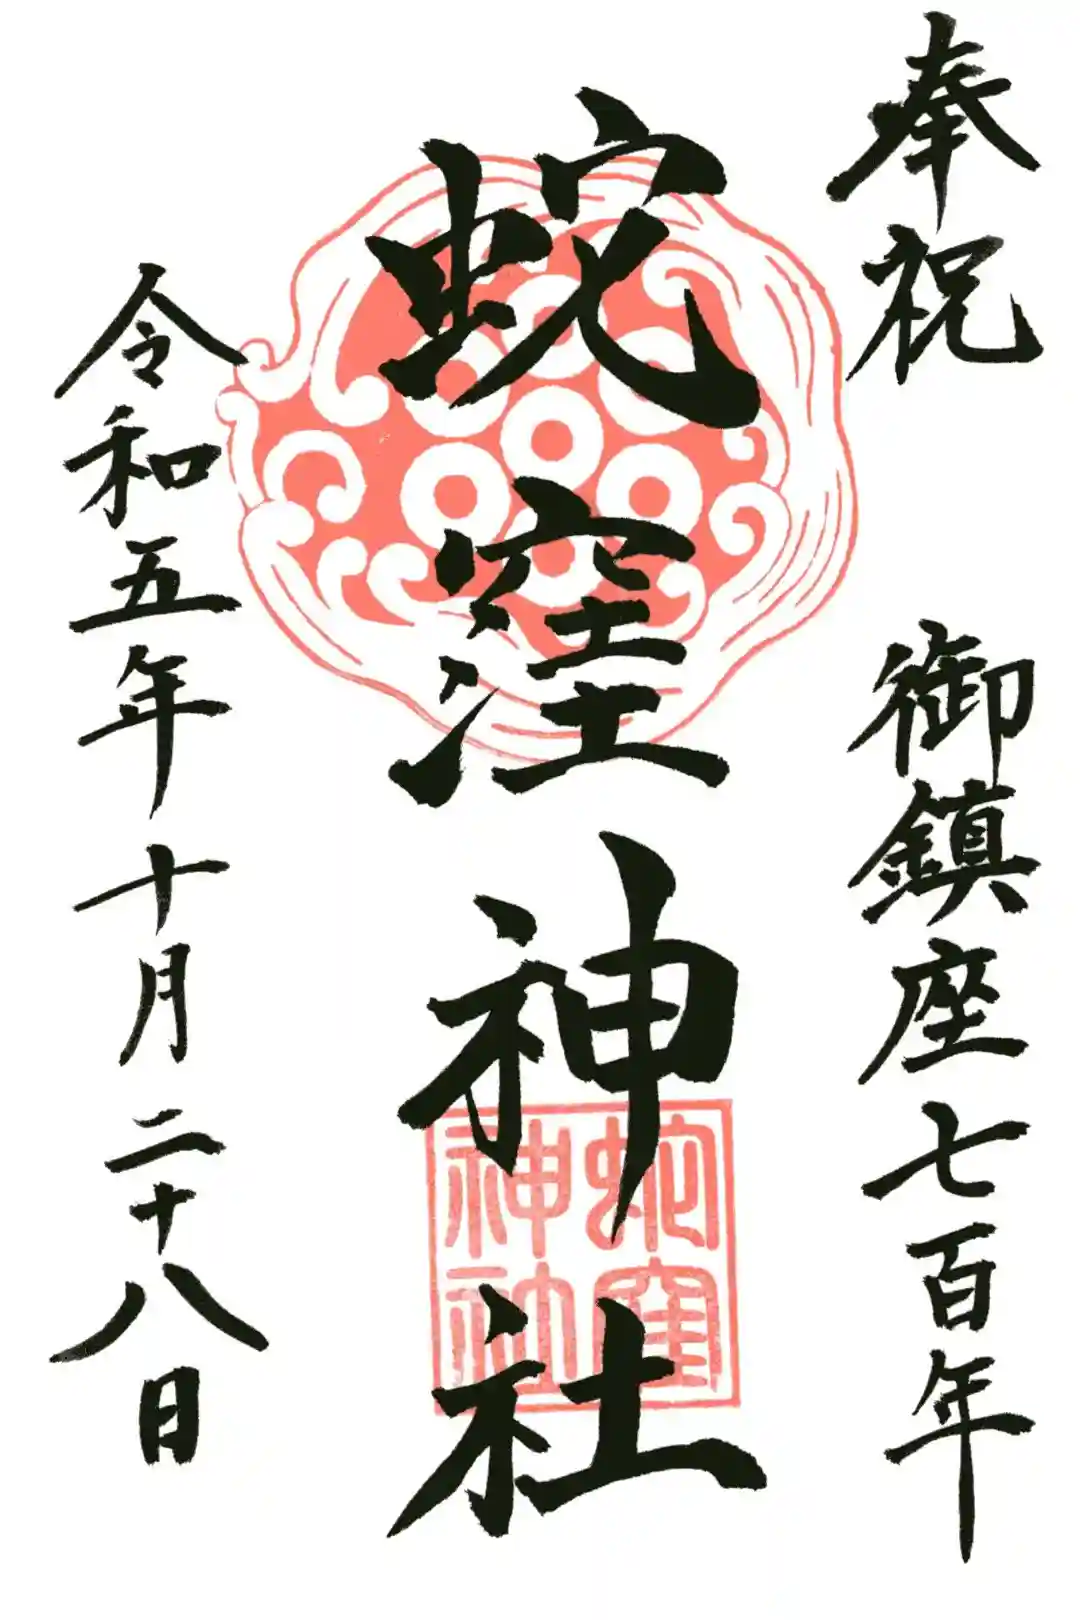 奉祝 御鎮座七百年
蛇窪神社
蛇窪
神社
令和五年十月二十八日